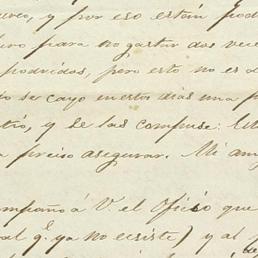 ueo, y por eso están pod
uro para no gastar dos vece
podridas, pero esto no es d
to se cayo en estos días una p
tró, y se las compuse: Est
a preciso asegurar. Mi am
ompaño á V. el Oficio que
al q.e ya no ecsiste) y al p